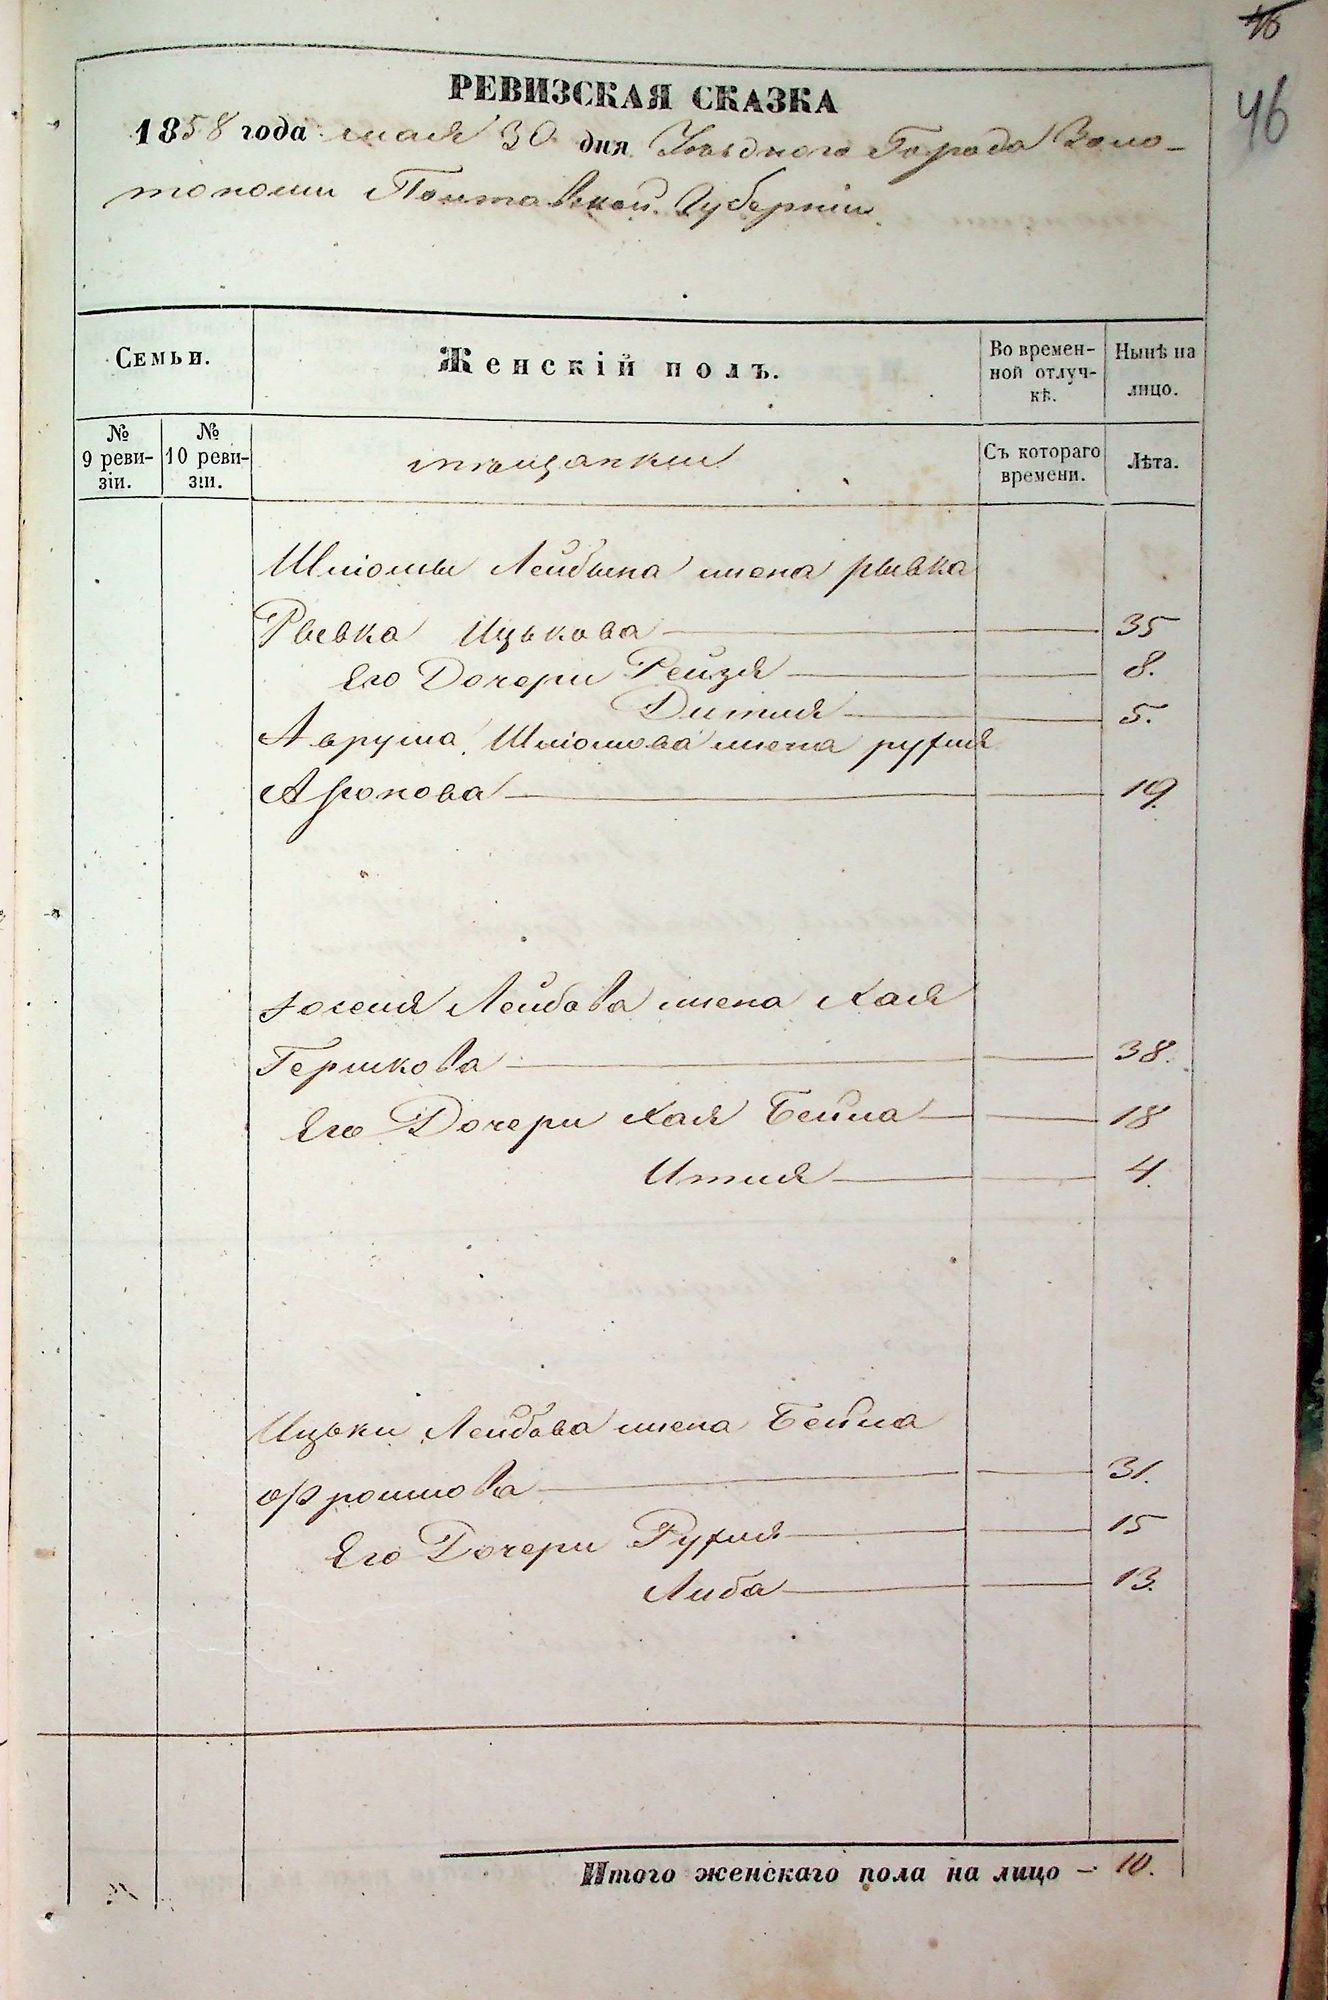 46
46
РЕВИЗСКАЯ СКАЗКА
1858 года мая 30 дня Уѣзднаго Города Золо-
тоноши Полтавской Губерніи
Семьи.
Женскій полъ.
Во времен-
ной отлуч-
кѣ.
Нынѣ на
лицо.
№
9 реви-
зіи.
№
10 реви-
зіи.
мѣщанки
Съ котораго
времени.
Лѣта.
Шліомы Лейбына жена рывка
Рывка Ицькова 35
Его Дочери Рейзя 8.
5.
Аврума Шліомова жена рухля
Аронова 19.
Лейбова жена Хая
Гершкова 38.
Его Дочери Хая Бейла 18
Итля 4.
Ицьки Лейбова жена Бейла
31.
Его Дочери Рухля 15
Либа 13.
Итого женскаго пола на лицо – 10.